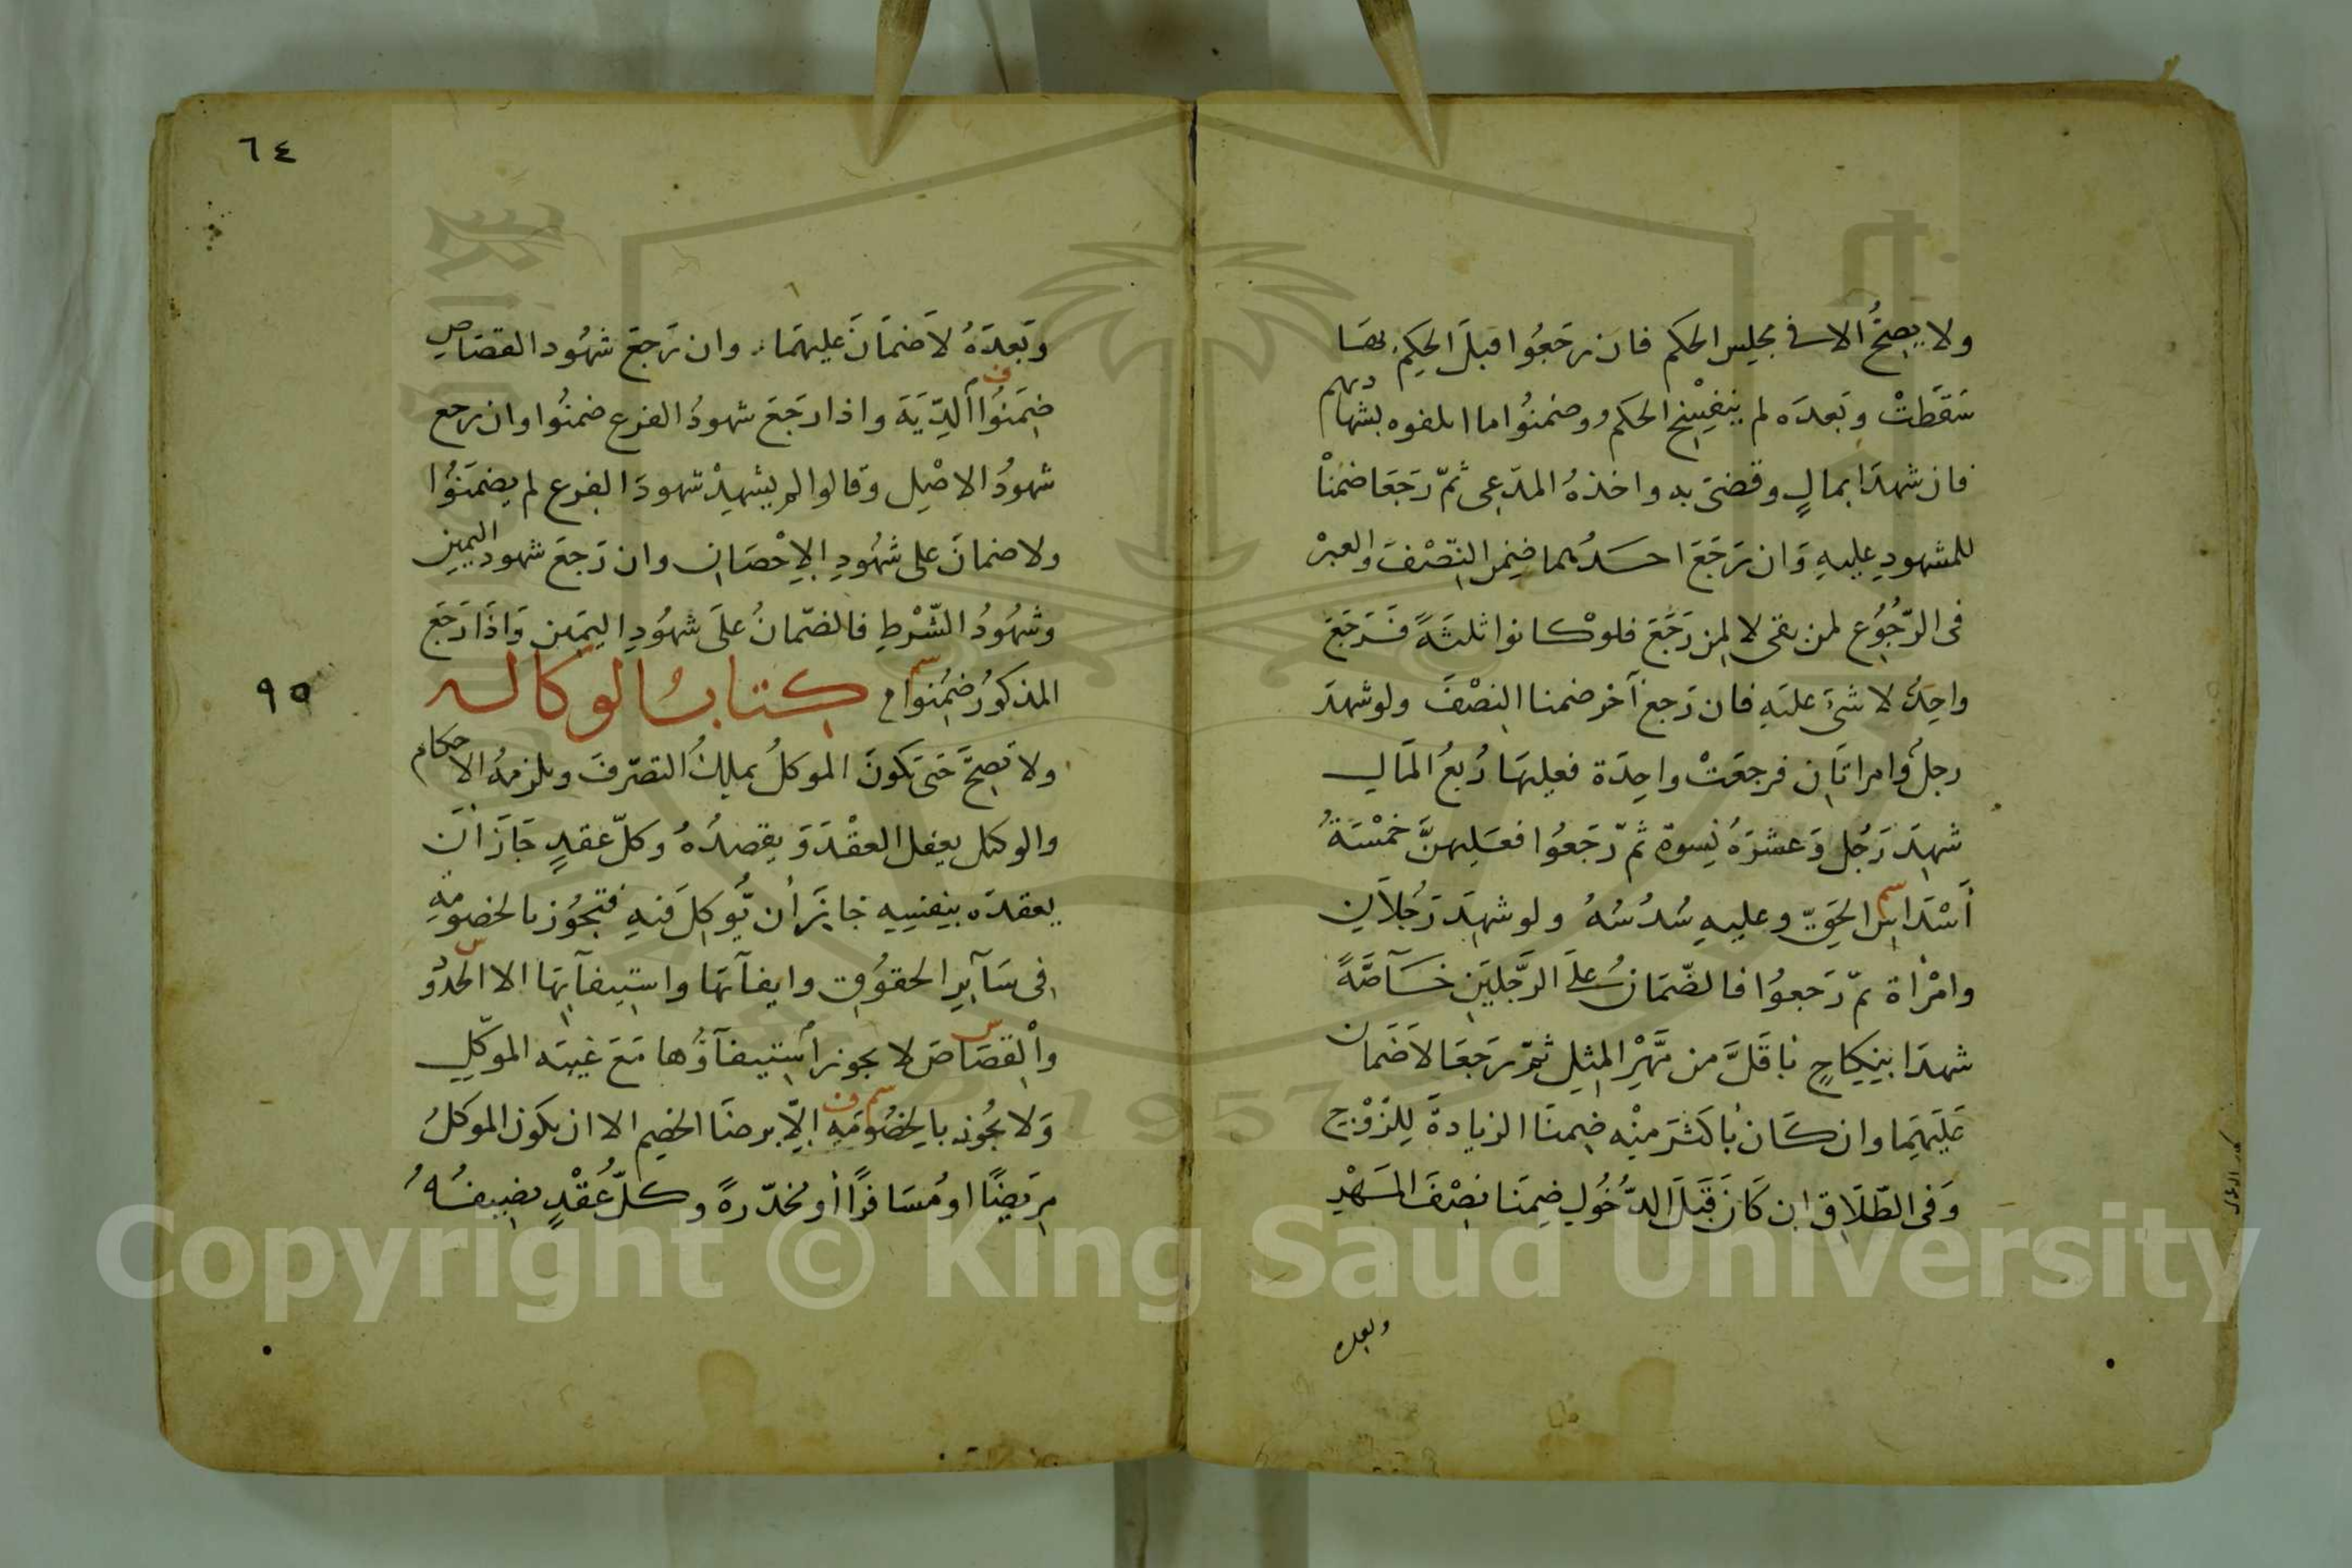 ولا يصح الا في مجلس الحكم فان رجعوا قبل الحكم بها
سقطت وبعده لم ينفسخ الحكم وضمنوا ما اتلفوه بشهادتهم
فان شهدا بمال وقضى به واخذه المدعى ثم رجعا ضمنا
للمشهود عليه وان رجع احدهما ضمن النصف والعبر
فى الرجوع لمن بقى لا لمن رجع فلو كانوا ثلثة فرجع
واحد لا شئ عليه فان رجع آخر ضمنا النصف ولو شهد
رجل وامراتان فرجعت واحدة فعليها ربع المال
شهد رجل وعشرة نسوة ثم رجعوا فعليهن خمسة
أسداس الحق وعليه سدسه ولو شهد رجلان
وامرأة ثم رجعوا فالضمان على الرجلين خآصة
شهدا بنكاح باقل من مهر المثل ثم رجعا لا ضمان
عليهما وان كان باكثر منه ضمنا الزيادة للزوج
وفى الطلاق ان كان قبل الدخول ضمنا نصف المهر
وبعده
٦٤
وبعده لا ضمان عليهما وان رجع شهود القصاص
ضمنوا الدية واذا رجع شهود الفرع ضمنوا وان رجع
شهود الاصل وقالوا لم يشهد شهود الفرع لم يضمنوا
ولا ضمان على شهود الاحصان وان رجع شهود اليمين
وشهود الشرط فالضمان على شهود اليمين واذا رجع
المذكور ضمنوا م كتاب الوكاله
٩٥
ولا تصح حتى يكون الموكل يملك التصرف ويلزمه الاحكام
والوكيل يعقل العقد ويقصده وكل عقد جاز ان
يعقده بنفسه جاز أن يوكل فيه فتجوز بالخصومة
فى سآير الحقوق وايفآئها واستيفآئها الا الحدود
والقصاص لا يجوز استيفآؤها مع غيبة الموكل
ولا يجوز بالخصومة إلا برضا الخصم الا ان يكون الموكل
مريضا او مسافرا أو مخدرة وكل عقد يضيفه
Copyright © King Saud University
1957